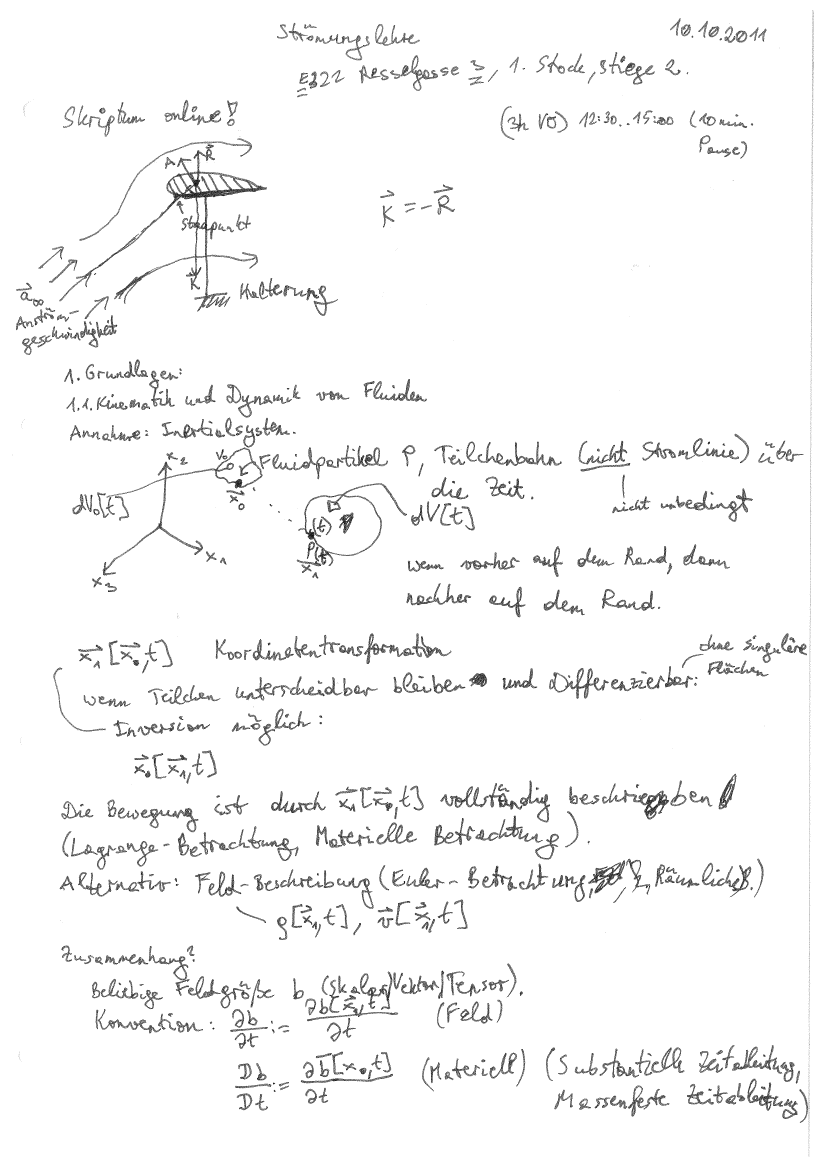 Strömungslehre
10.10.2011
E322 Resselgasse 3/2, 1. Stock, stiege 2.
Skriptum online!
(3h VO) 12:30..15:00 (10 min. Pause)
A R⃗
K⃗ = -R⃗
Staupunkt
K⃗
Halterung
Anström-
geschwindigkeit
1. Grundlagen:
1.1. Kinematik und Dynamik von Fluiden
Annahme: Inertialsystem.
x₂ V₀ Fluidpartikel P, Teilchenbahn (nicht Stromlinie) über
x⃗₀ die Zeit.
nicht unbedingt
dV₀[t] (t) dV[t]
x₁ P(t)
x⃗₁
x₃
wenn vorher auf dem Rand, dann
nachher auf dem Rand.
x⃗₁[x⃗₀,t] Koordinatentransformation
ohne singuläre
Flächen
wenn Teilchen unterscheidbar bleiben und Differenzierbar:
Inversion möglich:
x⃗₀[x⃗₁,t]
Die Bewegung ist durch x⃗₁[x⃗₀,t] vollständig beschrieben
(Lagrange-Betrachtung, Materielle Betrachtung).
Alternativ: Feld-Beschreibung (Euler-Betrachtung, Räumliche B.)
ρ[x⃗₁,t], v⃗[x⃗₁,t]
Zusammenhang?
Beliebige Feldgröße b (Skalar/Vektor/Tensor).
Konvention: ∂b/∂t := ∂b[x⃗₁,t]/∂t (Feld)
Db/Dt := ∂b[x⃗₀,t]/∂t (Materiell) (Substantielle Zeitableitung,
Massenfeste Zeitableitung)